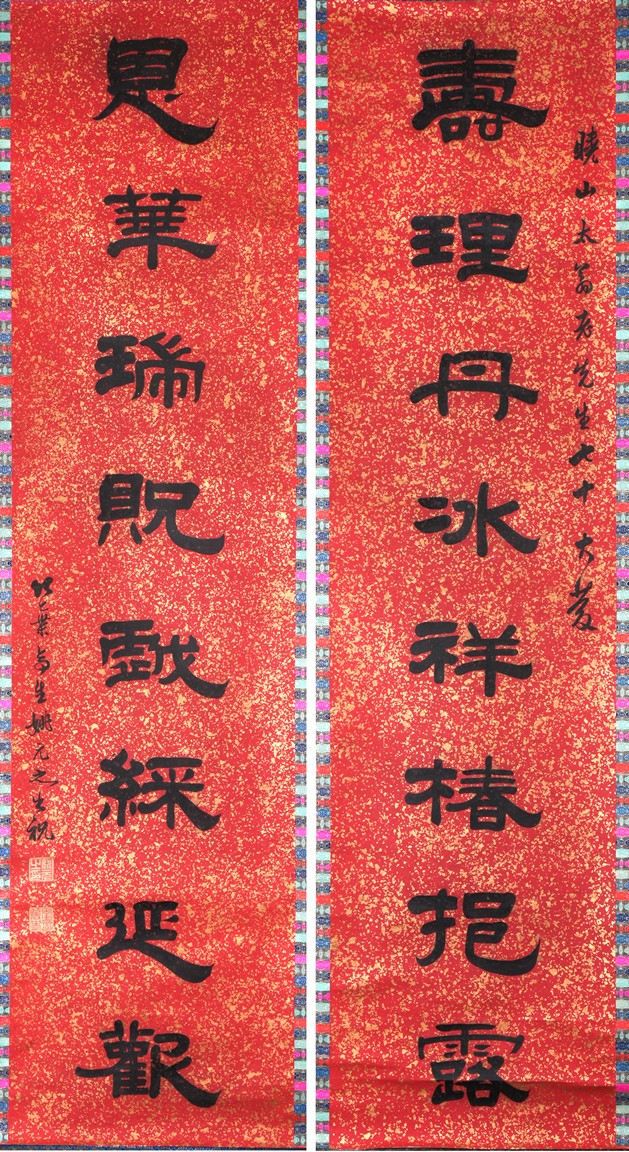 曉山太翁老先生七十大慶
壽理丹冰祥椿挹露
恩華瑞貺戲綵延歡
竹葉亭生姚元之祝